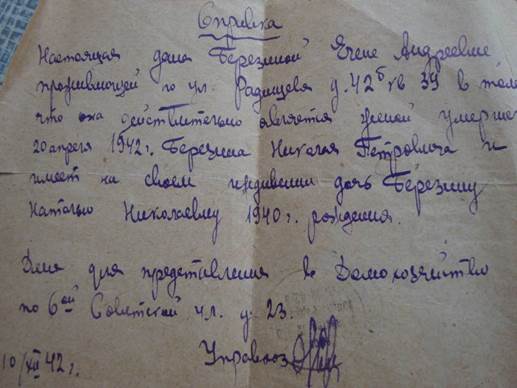 Справка
Настоящая дана Березиной Елене Андреевне
проживающей по ул. Радищева д. 42б кв 39 в том
что она действительно является женой умершего
20 апреля 1942г. Березина Николая Петровича и
имеет на своем иждивении дочь Березину
Наталью Николаевну 1940г. рождения.
Дана для представления в Домохозяйство
по 6ой Советской ул. д. 23.
Управхоз
10/XII 42г.